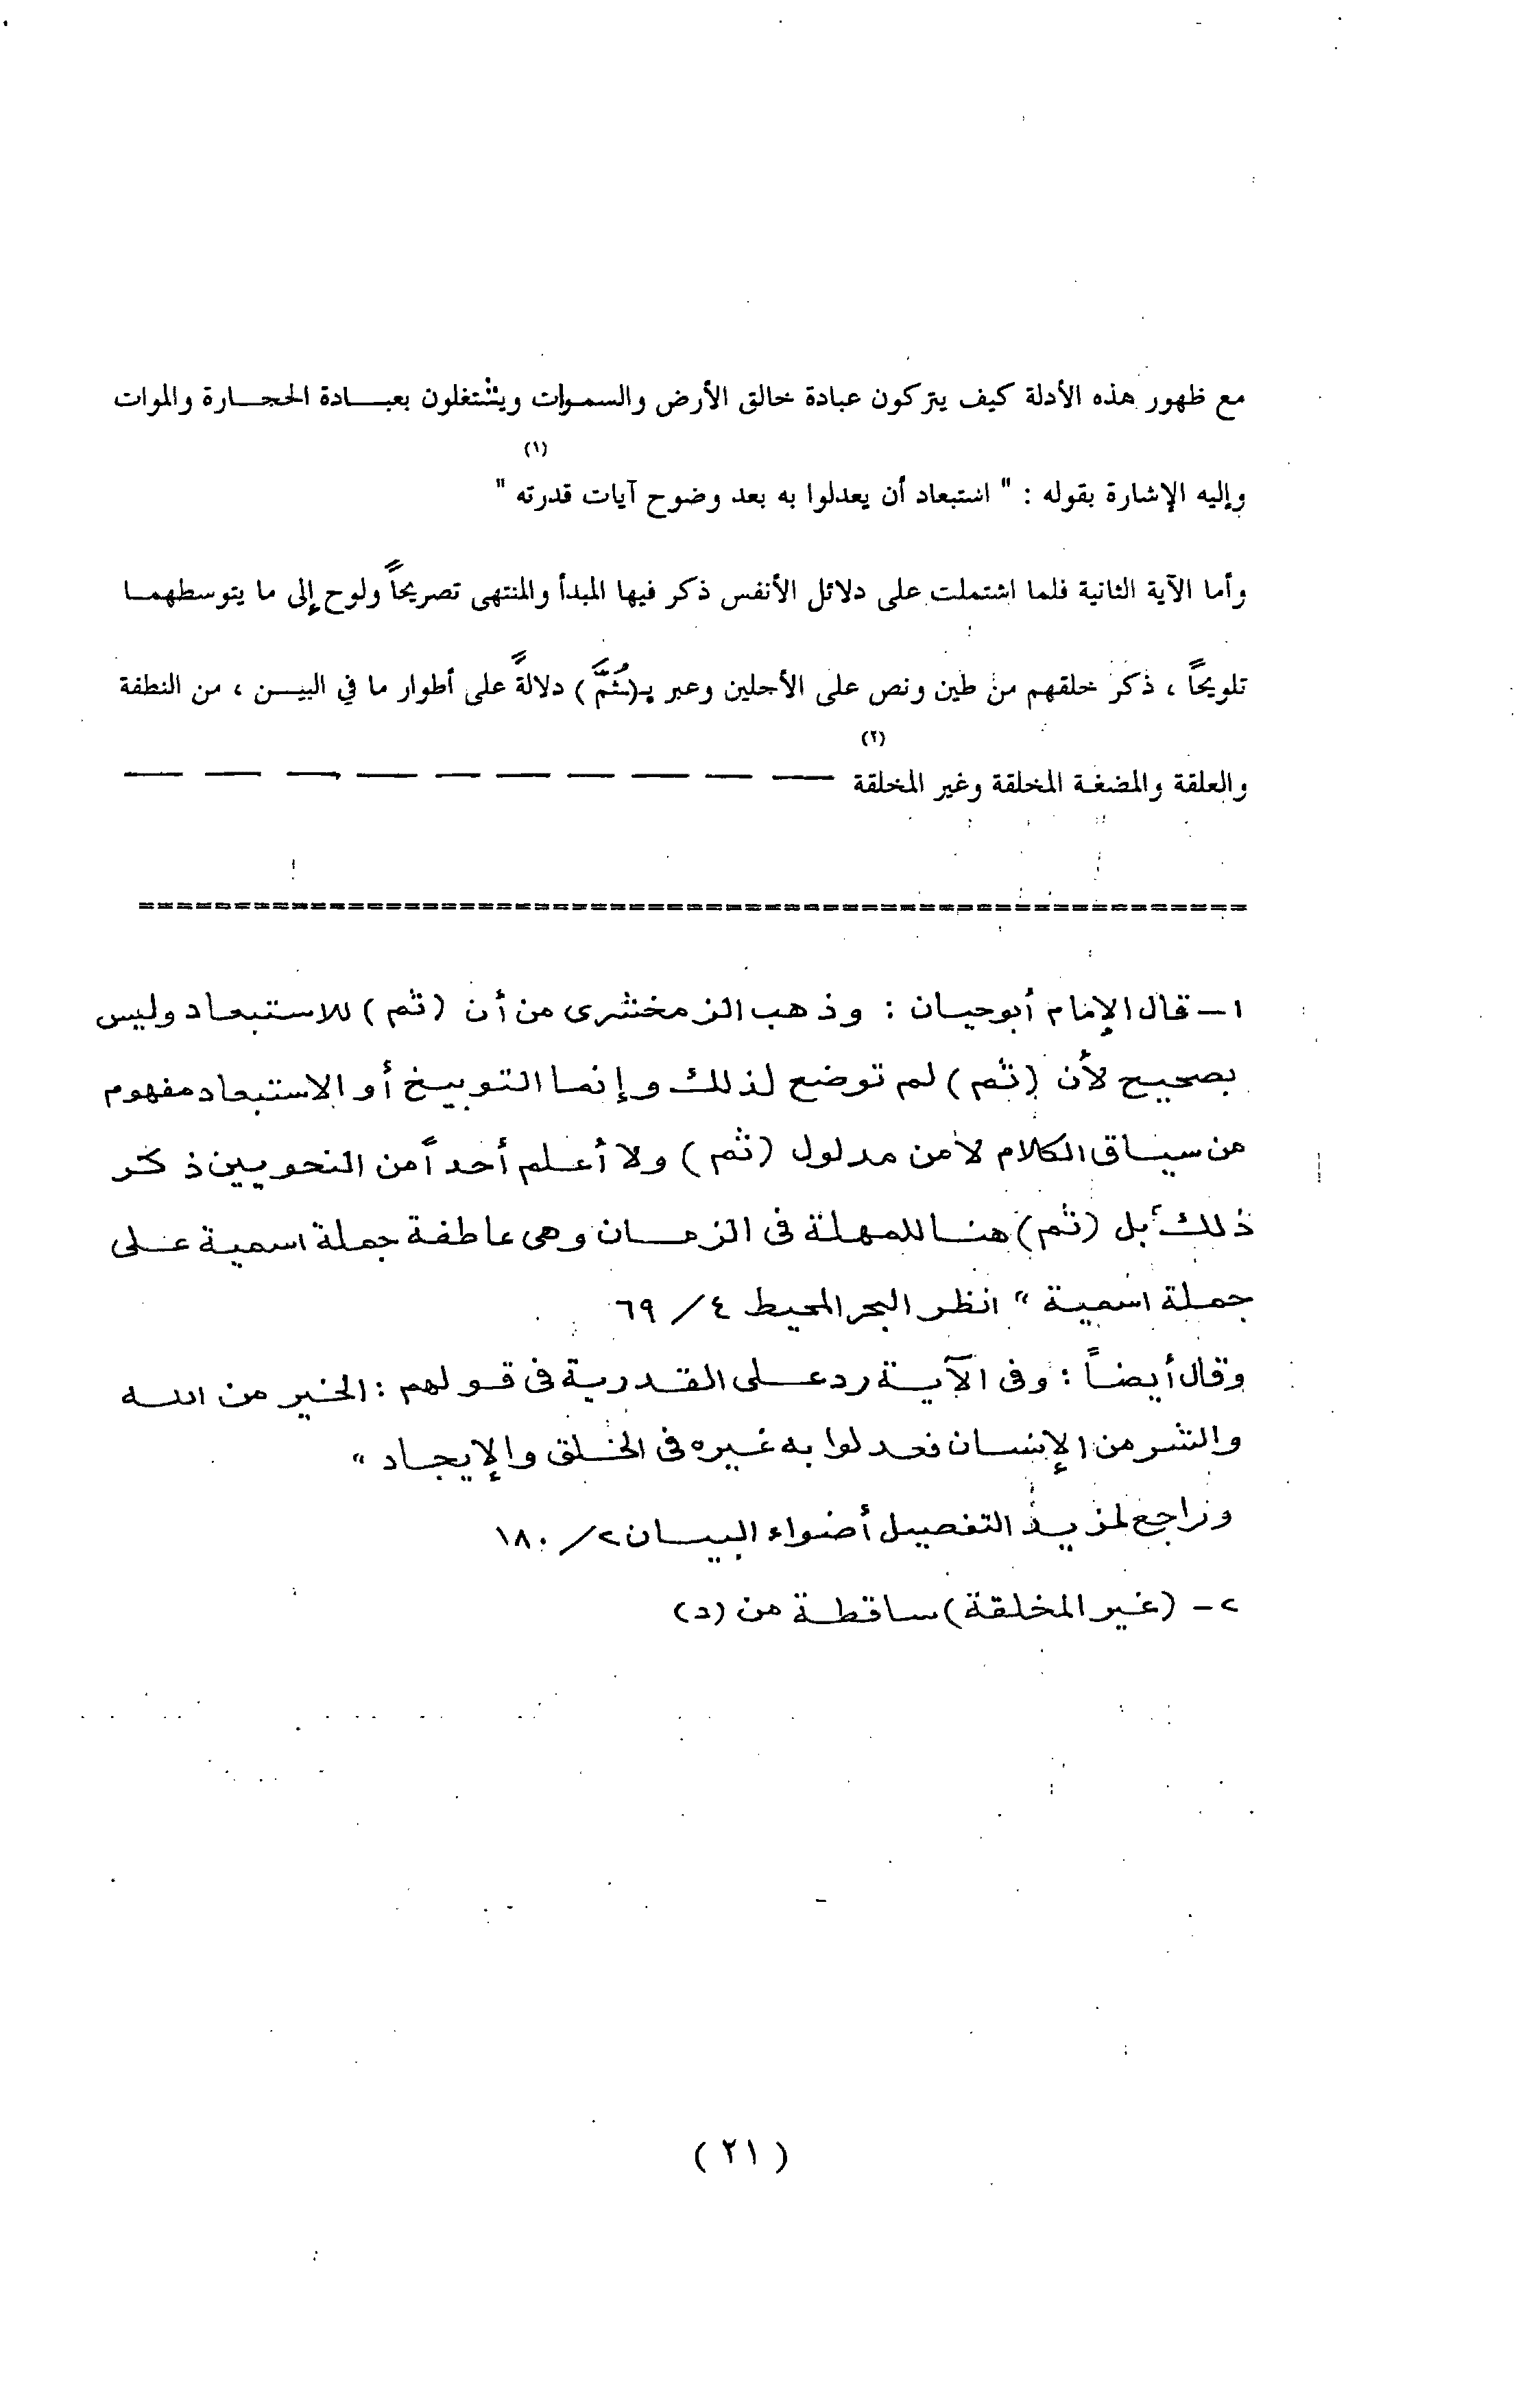 مع ظهور هذه الأدلة كيف يتركون عبادة خالق الأرض والسموات ويشتغلون بعبـــادة الحجـــارة والموات
(١)
وإليه الإشارة بقوله : " استبعاد أن يعدلوا به بعد وضوح آيات قدرته "
وأما الآية الثانية فلما اشتملت على دلائل الأنفس ذكر فيها المبدأ والمنتهى تصريحاً ولوح إلى ما يتوسطهمـا
تلويحاً ، ذكر خلقهم من طين ونص على الأجلين وعبر بـ(ثُمَّ) دلالةً على أطوار ما في البيـــن ، من النطفة
(٢)
والعلقة والمضغة المخلقة وغير المخلقة — — — — — — — — — —
١ – قال الإمام أبو حيــان : وذهب الزمخشرى من أن (ثم) للاستبعــاد وليس
بصحيح لأن (ثم) لم توضع لذلك وإنمــا التوبيخ أو الاستبعاد مفهوم
من سيــاق الكلام لا من مدلول (ثم) ولا أعــلم أحداً من النحويين ذكر
ذلك بل (ثم) هنــا للمهلة فى الزمــان وهى عاطفة جملة اسمية عــلى
جملة اسمية " انظر البحر المحيط ٤ / ٦٩
وقال أيضــاً : وفى الآيــة رد عــلى القــدرية فى قــولهم : الخير من اللــه
والشر من الإنســان فعدلوا به غــيره فى الخــلق والإيجــاد "
وراجع لمزيــد التفصيل أضواء البيــان ٢ / ١٨٠
٢ – (غير المخلقة) ســاقطــة من (د)
( ٢١ )